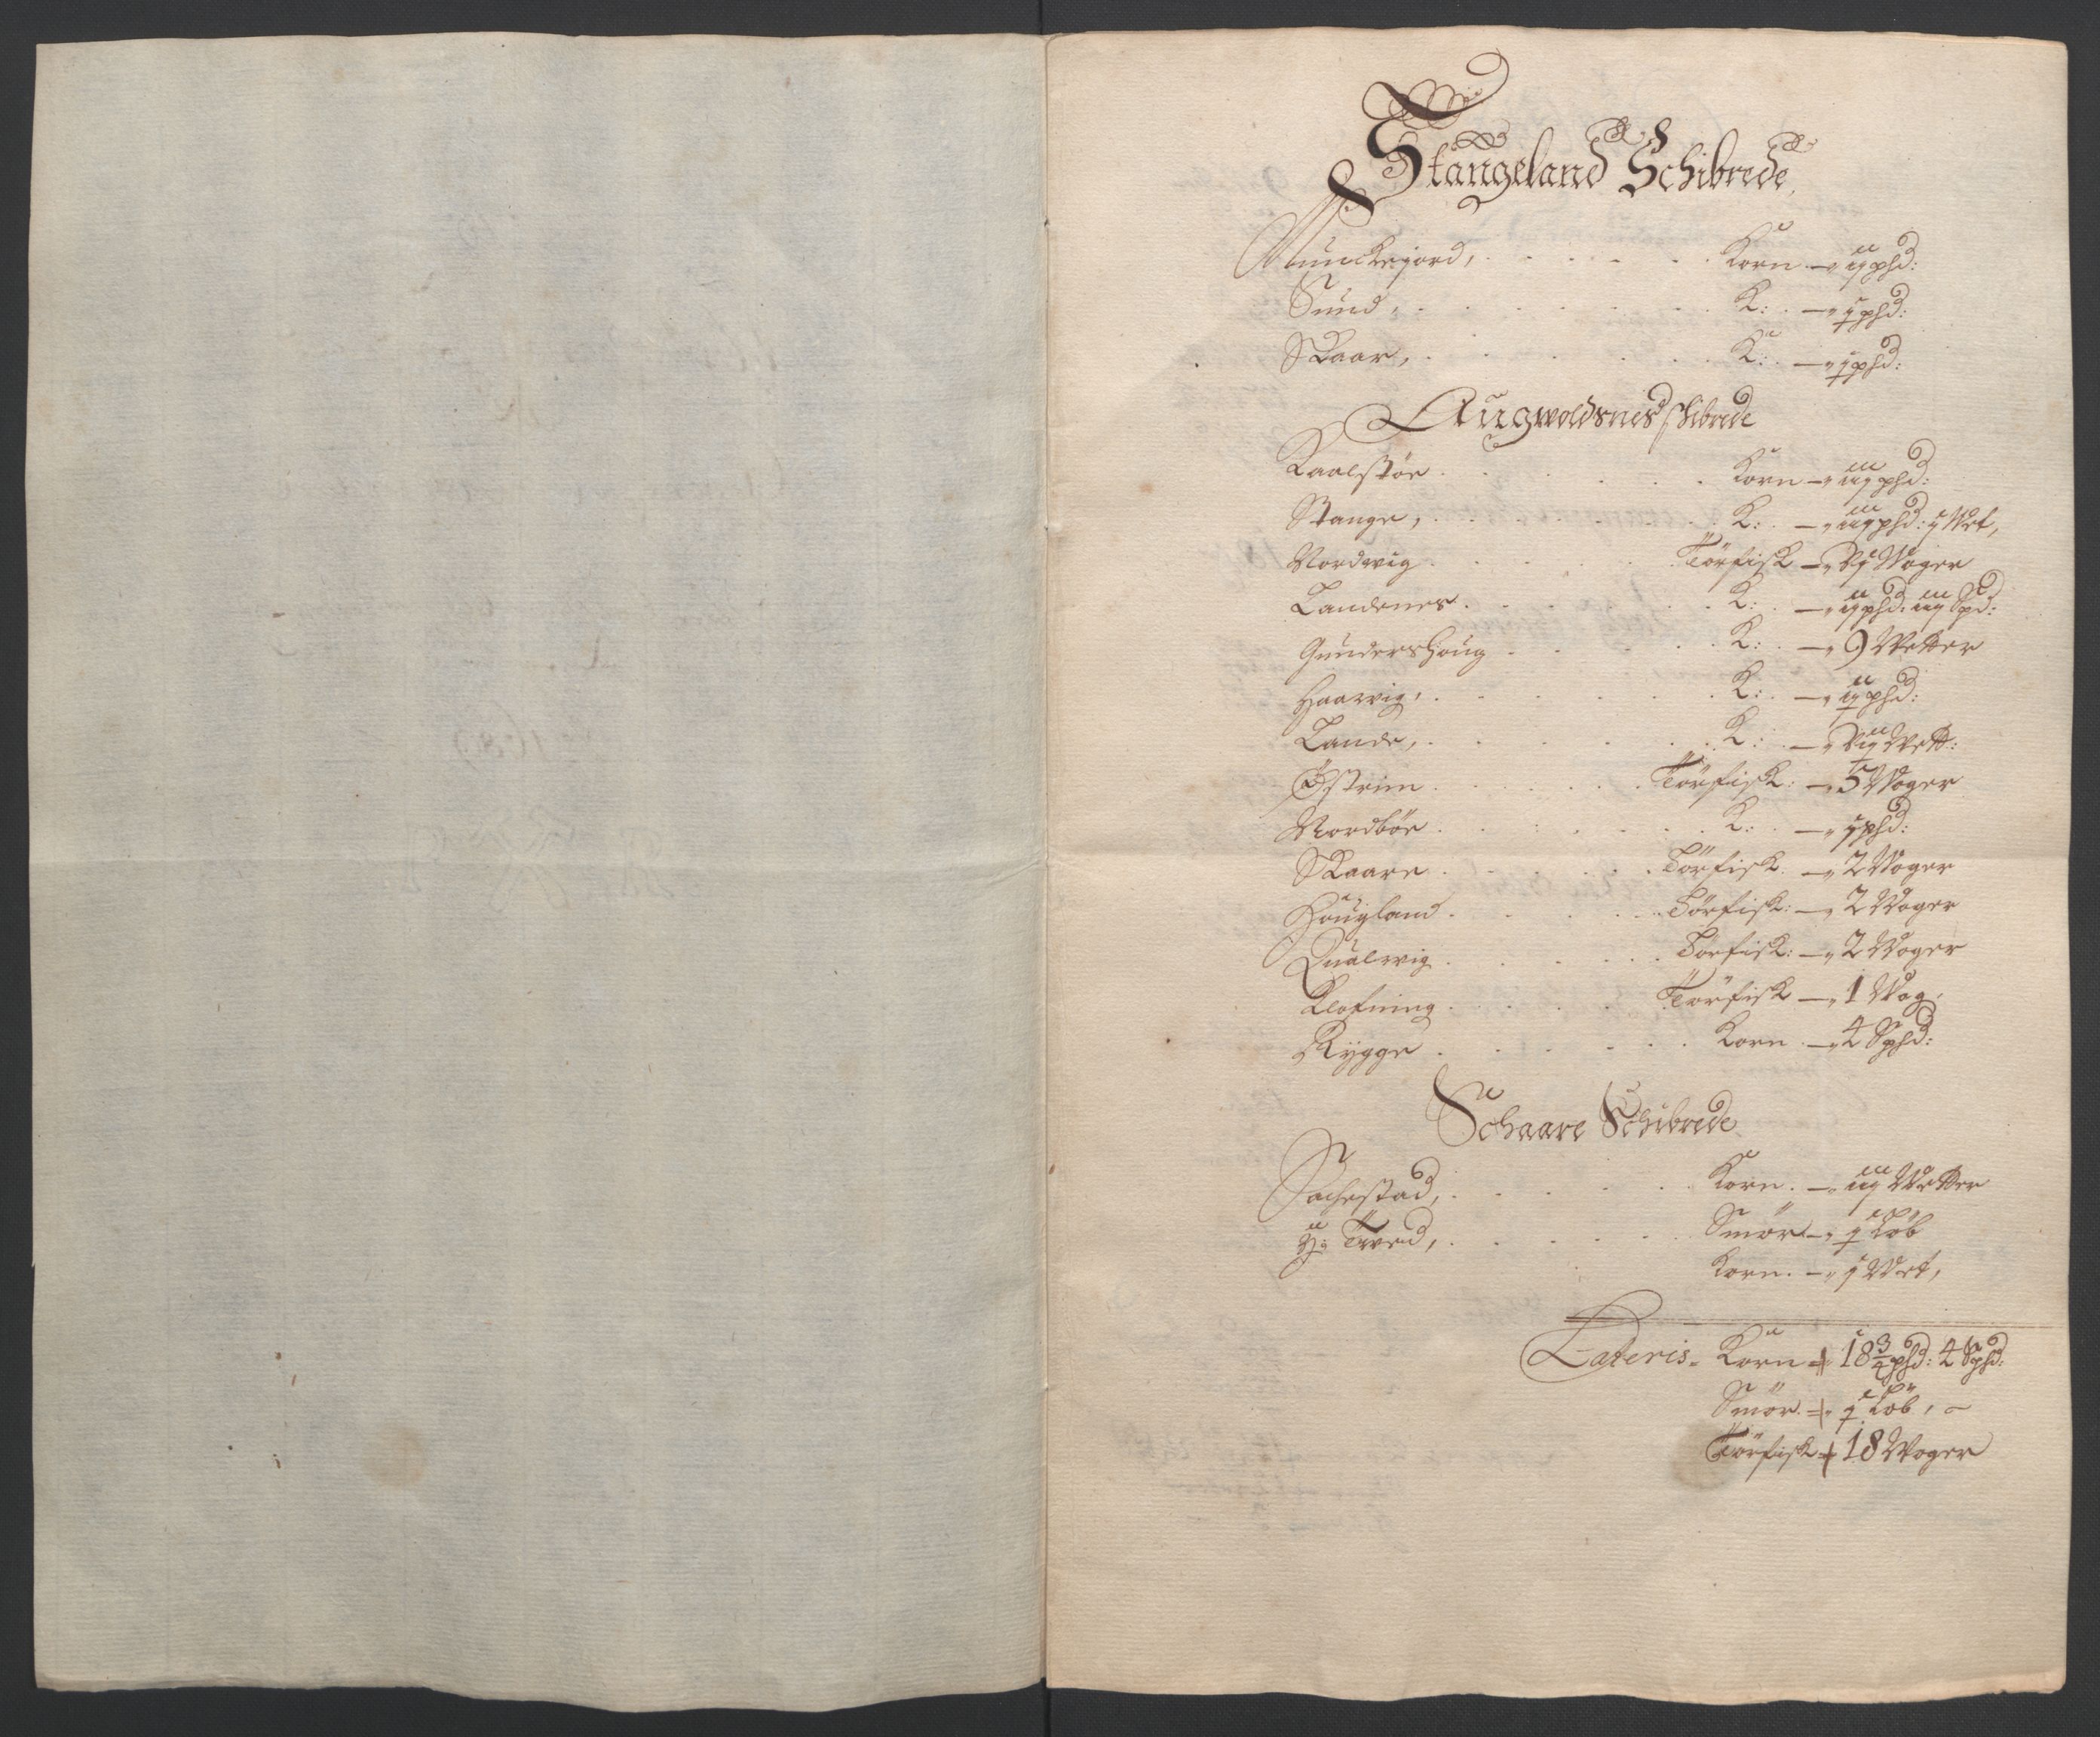 Stangeland Schibrede
Munckejord, Korn — ij phd:
Sund, K: — j phd:
Skaar, K: — j phd:
Augwoldsnes schibrede
Kaalstöe Korn — iij phd:
Stange, K: — iij phd: j Wet,
Nordwig Törfisk — Vj Woger
Landenes K: — ij phd: iij Spd:
Gundershoug K: — 9 Wetter
Haawig, K: — ij phd:
Lande, K: — Vij Wett:
Östrim Törfisk: — 5 Woger
Nordböe K: — j phd:
Skaare Törfisk — 2 Woger
Hougland Törfisk: — 2 Woger
Qualwig Törfisk: — 2 Woger
Klofning Törfisk — 1 Wog,
Rygge Korn — 4 Sphd:
Schaare Schibrede
Sachestad, Korn. — iij Wetter
Tved, Smör — j Löb
Korn. — j Wet,
Lateris Korn 18 3/4 phd: 4 Sphd:
Smör j Löb, —
Törfisk 18 Woger